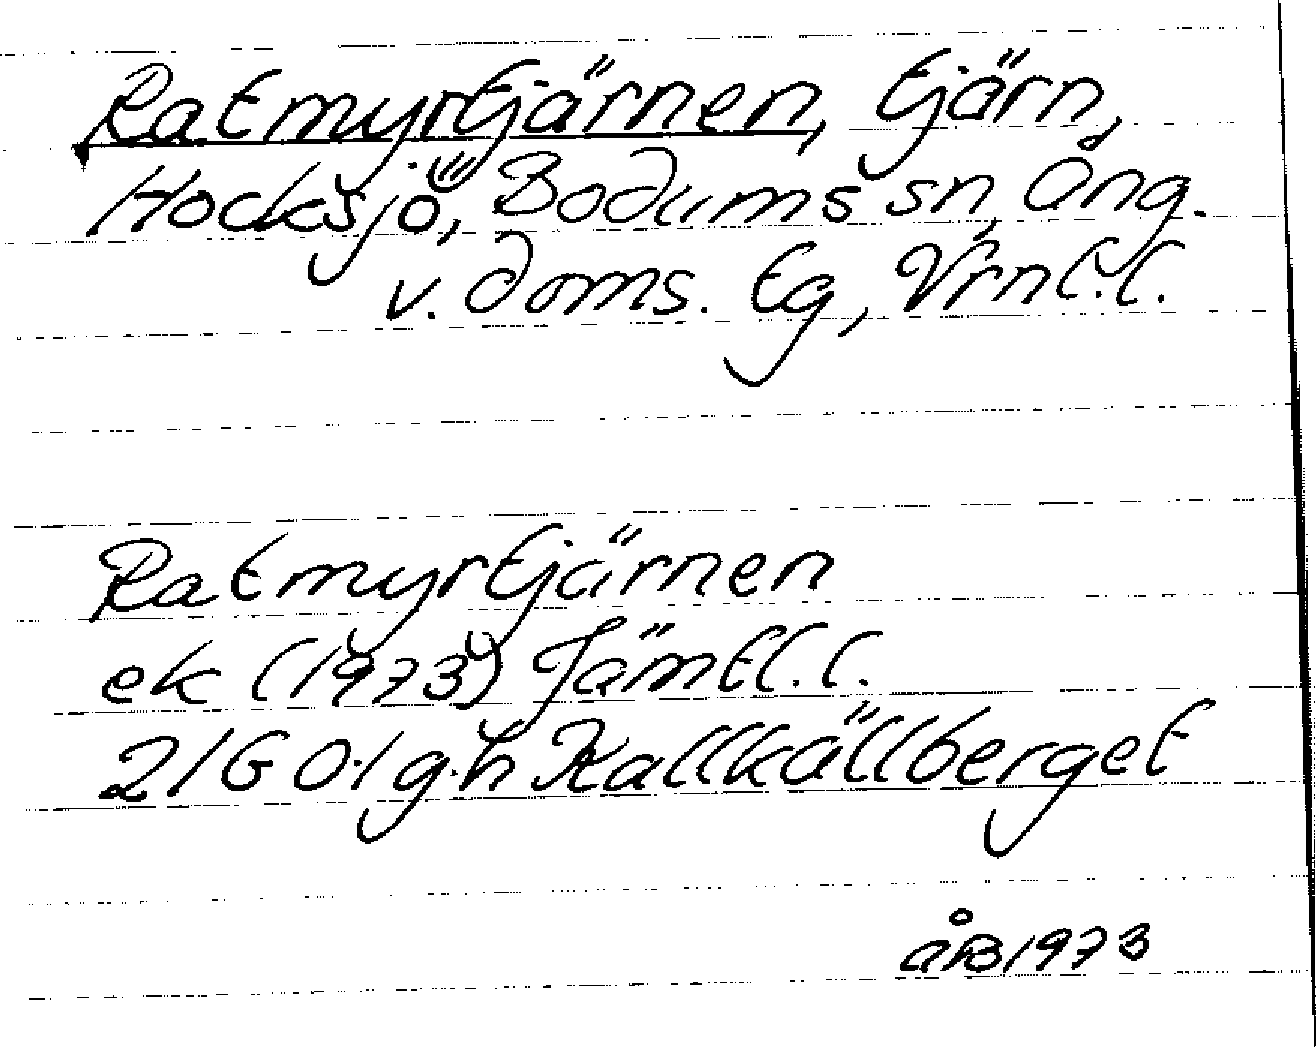 Ratmyrtjärnen, tjärn,
Hocksjö, Bodums sn, Ång.
v. doms. tg, Vrnl.l.
Ratmyrtjärnen
ek (1973) Jämtl.l.
21G 0-1 g-h Kallkällberget
åB 1973